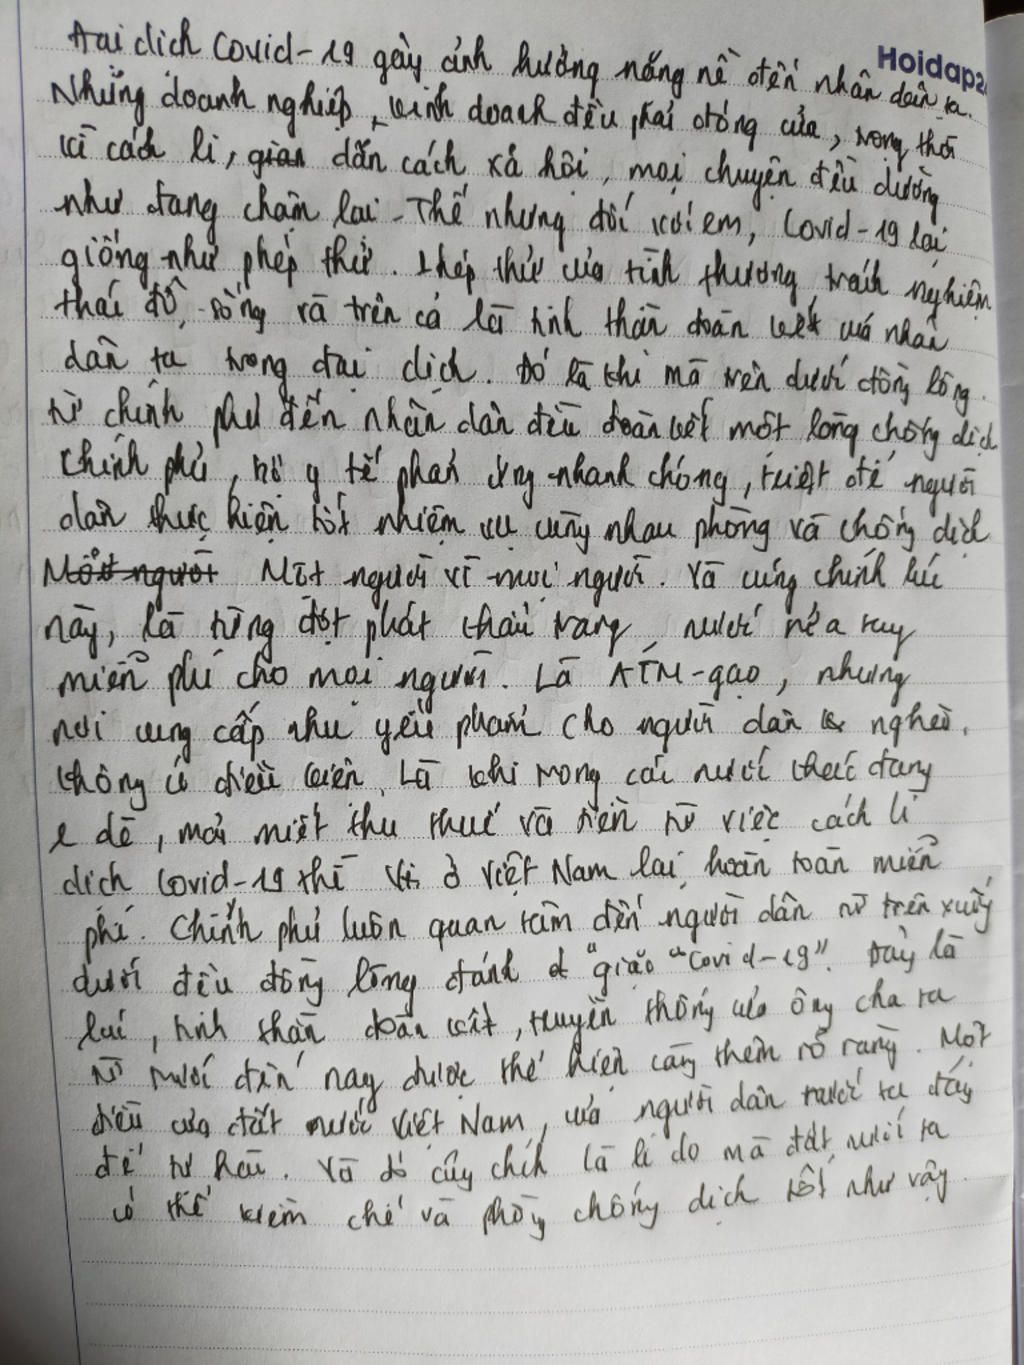 Đại dịch Covid-19 gây ảnh hưởng nặng nề đến nhân dân ta.
Hoidap2
Những doanh nghiệp, kinh doanh đều phải đóng cửa, trong thời
kì cách li, gian dãn cách xã hội, mọi chuyện đều dường
như đang chậm lại. Thế nhưng đối với em, Covid-19 lại
giống như phép thử. Phép thử của tình thương, trách nghiệm
thái độ, sống và trên cả là tinh thần đoàn kết của nhân
dân ta trong đại dịch. Đó là khi mà trên dưới đồng lòng.
từ chính phủ đến nhân dân đều đoàn kết một lòng chống dịch
Chính phủ, bộ y tế phản ứng nhanh chóng, triệt để người
dân thực hiện tốt nhiệm vụ cùng nhau phòng và chống dịch
Một người Một người vì mọi người. Và cũng chính lúc
này, là từng đợt phát khẩu trang, nước rửa tay
miễn phí cho mọi người. Là ATM-gạo, những
nơi cung cấp nhu yếu phẩm cho người dân nghèo,
không có điều kiện. Là khi trong các nước khác đang
e dè, mải miết thu thuế và tiền từ việc cách li
dịch Covid-19 thì ở Việt Nam lại hoàn toàn miễn
phí. Chính phủ luôn quan tâm đến người dân từ trên xuống
dưới đều đồng lòng đánh "giặc "Covid-19". Đây là
lúc, tinh thần đoàn kết, truyền thống của ông cha ta
từ trước đến nay được thể hiện càng thêm rõ ràng. Một
điều của đất nước Việt Nam, của người dân nước ta đáng
để tự hào. Và đó cũng chính là lí do mà đất nước ta
có thể kiềm chế và phòng chống dịch tốt như vậy.